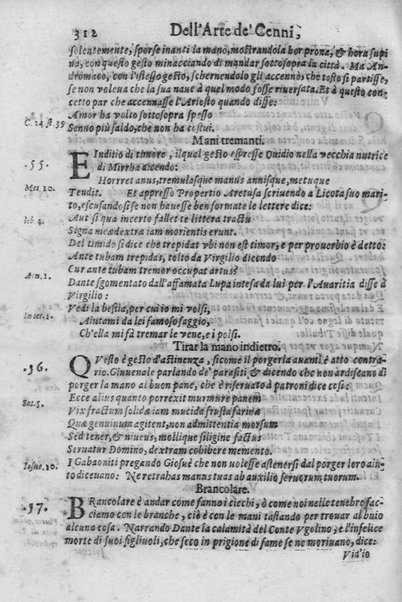 312 Dell'Arte de' Cenni,
solentemente, sporse inanti la mano, mostrandola hor prona, & hora supi
na, con questo gesto minacciando di mandar sottosopra la città. Ma An
dromaco, con l'istesso gesto, schernendolo gli accennò, che tosto si partisse,
se non voleua che la sua naue à quel modo fosse riuersata. Et à questo con
cetto par che accennasse l'Ariosto quando disse:
Amor ha volto sottosopra spesso
C. 24 st. 39
Senno più saldo, che non ha costui.
Mani tremanti.
.55.
E Inditio di timore, il qual gesto espresse Ouidio nella vecchia nutrice
di Mirrha dicendo:
Met 10.
Horret anus, tremulasque manus annisque, metuque
Tendit. Et appresso Propertio Aretusa scriuendo a Licota suo mari
to, escusandosi se non hauesse ben formate le lettere dice:
lib 4.
Aut si qua incerto fallet te littera tractu
Signa meæ dextræ iam morientis erunt.
Del timido si dice che trepidat vbi non est timor, e per prouerbio è detto:
Ante tubam trepidas, tolto da Virgilio dicendo
Æn. 1.
Cur ante tubam tremor occupat artus?
Dante sgomentato dall'affamata Lupa intesa da lui per l'Auaritia disse à
Virgilio:
Infer 1.
Vedi la bestia, per cui io mi volsi,
Aiutami da lei famoso saggio,
Ch'ella mi fà tremar le vene, e i polsi.
Tirar la mano indietro.
.56.
QVesto è gesto d'astinenza, si come il porgerla auanti è atto contra-
rio. Giuuenale parlando de' parasiti & dicendo che non ardiscano di
porger la mano al buon pane, che è riseruato a' patroni dice cosi:
Sat. 5.
Ecce alius quanto porrexit murmure panem
Vix fractum solidæ iam mucida frusta farinæ
Quæ genuinum agitent, non admittentia morsum
Sed tener, & niueus, mollique siligine factus
Seruatur Domino, dextram cohibere memento.
Iosue. 10.
I Gabaoniti pregando Giosuè che non uolesse astenersi dal porger loro aiu-
to diceuano: Ne retrahas manus tuas ab auxilio seruorum tuorum.
Brancolare.
.57.
BRancolare è andar come fanno i ciechi, ò come noi nelle tenebre fac-
ciamo con le branche, ciò è con le mani tastando per trouar al buio
alcuna cosa. Narrando Dante la calamità del Conte Vgolino, e l'infelice
morte di suoi figliuoli, che seco in prigione di fame se ne moriuano, dice:
Vid'io